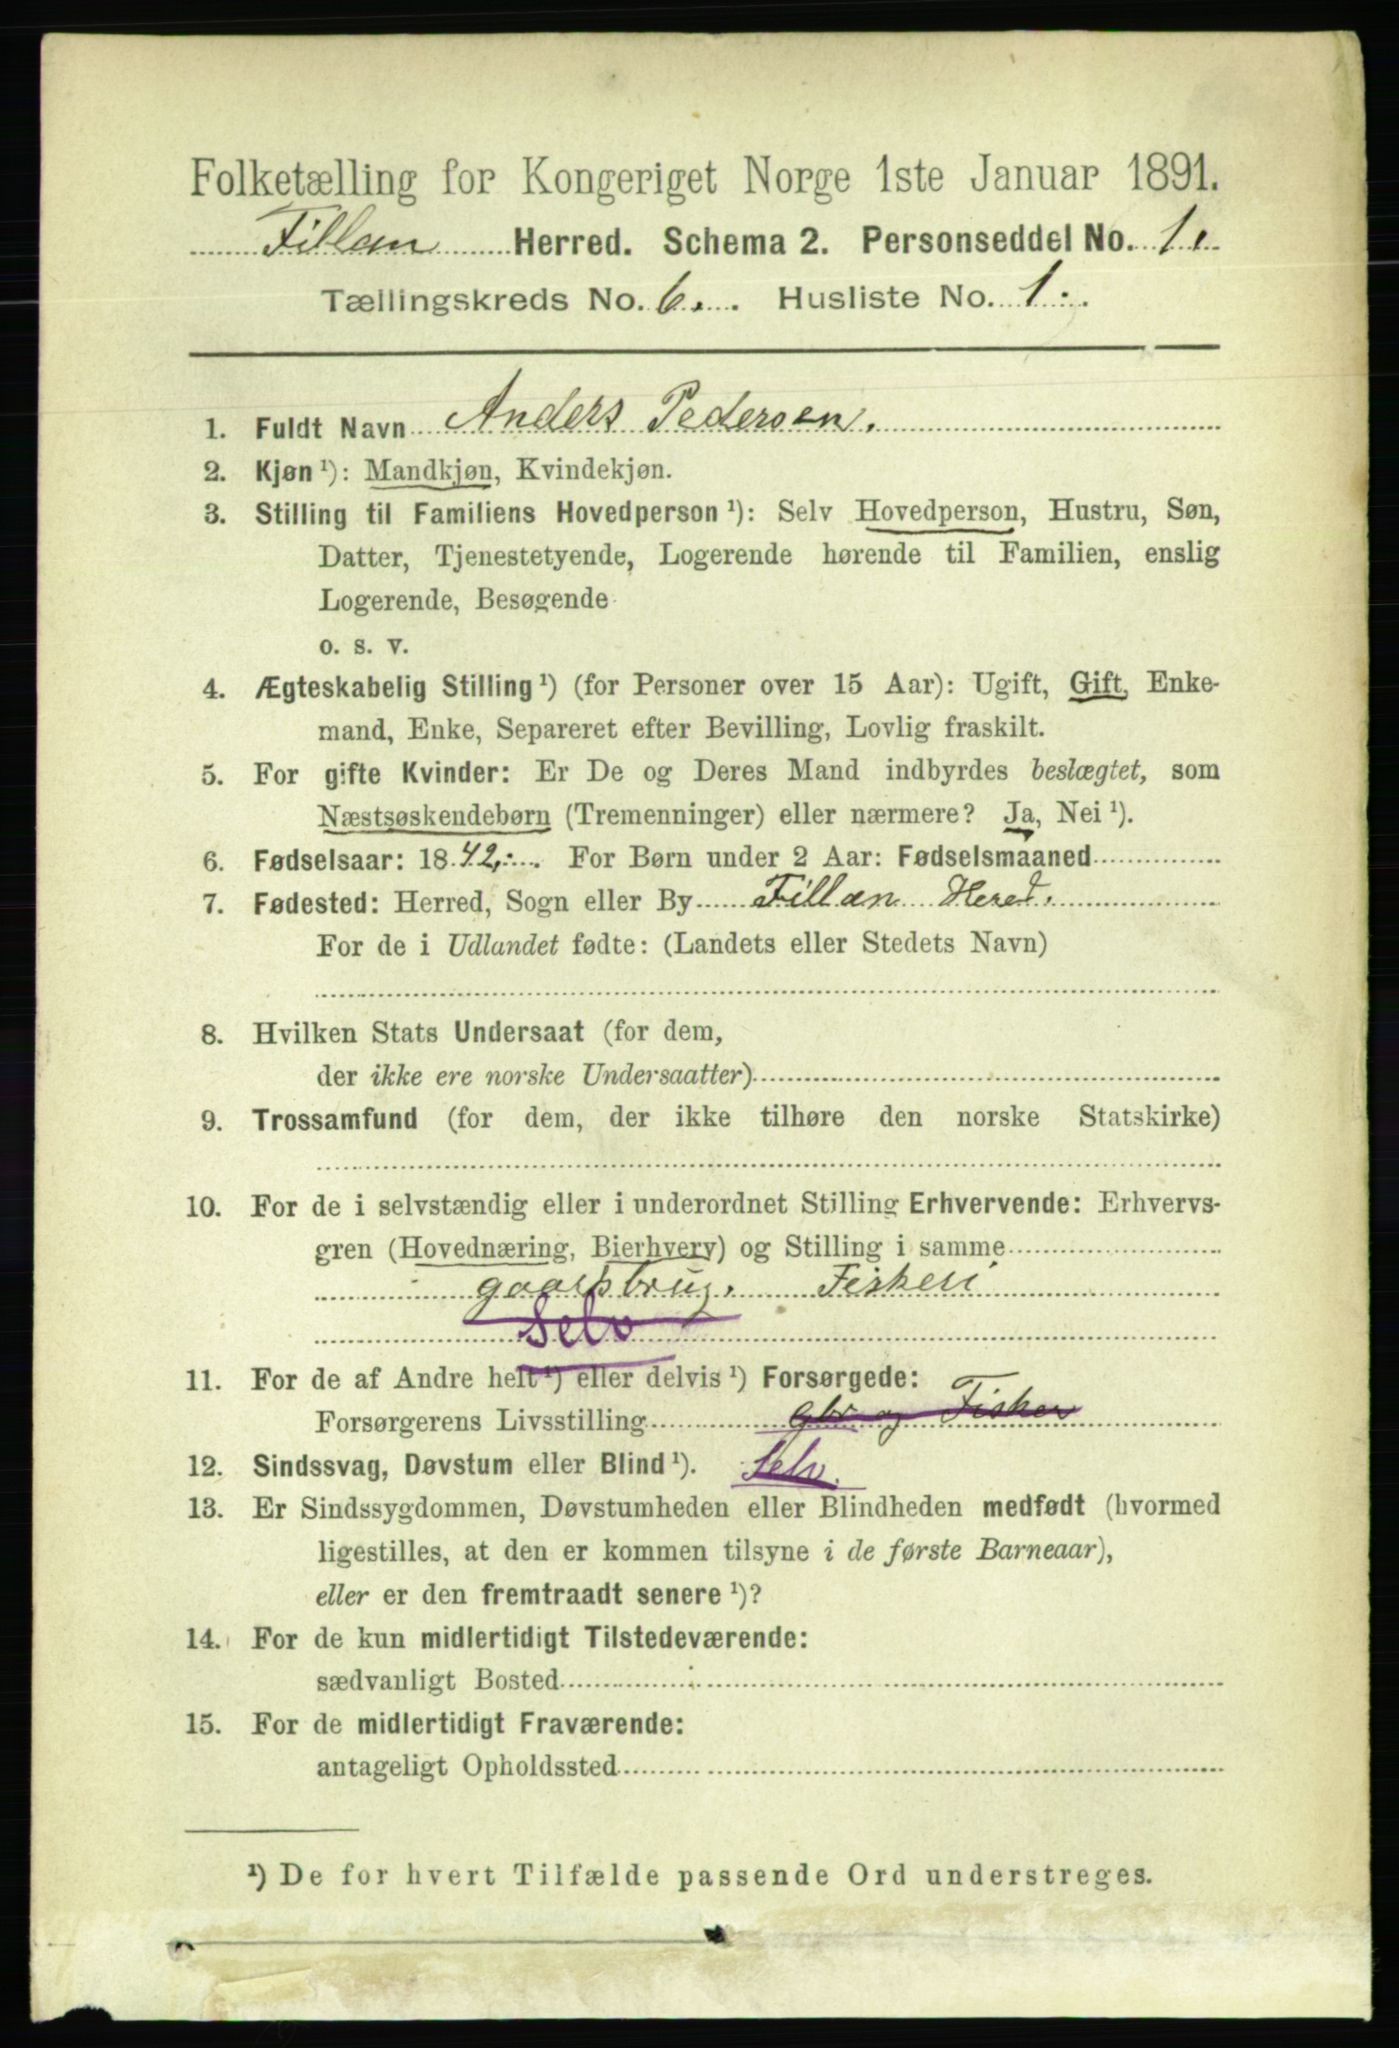 Folketælling for Kongeriget Norge 1ste Januar 1891.
Fillan Herred. Schema 2. Personseddel No. 1.
Tællingskreds No. 6. Husliste No. 1.
1. Fuldt Navn Anders Pedersen.
2. Kjøn ¹): Mandkjøn, Kvindekjøn.
3. Stilling til Familiens Hovedperson ¹): Selv Hovedperson, Hustru, Søn,
Datter, Tjenestetyende, Logerende hørende til Familien, enslig
Logerende, Besøgende
o. s. v.
4. Ægteskabelig Stilling ¹) (for Personer over 15 Aar): Ugift, Gift, Enke-
mand, Enke, Separeret efter Bevilling, Lovlig fraskilt.
5. For gifte Kvinder: Er De og Deres Mand indbyrdes beslægtet, som
Næstsøskendebørn (Tremenninger) eller nærmere? Ja, Nei ¹).
6. Fødselsaar: 1842. For Børn under 2 Aar: Fødselsmaaned
7. Fødested: Herred, Sogn eller By Fillan Hered.
For de i Udlandet fødte: (Landets eller Stedets Navn)
8. Hvilken Stats Undersaat (for dem,
der ikke ere norske Undersaatter)
9. Trossamfund (for dem, der ikke tilhøre den norske Statskirke)
10. For de i selvstændig eller i underordnet Stilling Erhvervende: Erhvervs-
gren (Hovednæring, Bierhverv) og Stilling i samme
gaardsbrug. Fiskeri
Selv
11. For de af Andre helt ¹) eller delvis ¹) Forsørgede:
Forsørgerens Livsstilling gbr og Fisker
12. Sindssvag, Døvstum eller Blind ¹). Selv.
13. Er Sindssygdommen, Døvstumheden eller Blindheden medfødt (hvormed
ligestilles, at den er kommen tilsyne i de første Barneaar),
eller er den fremtraadt senere ¹)?
14. For de kun midlertidigt Tilstedeværende:
sædvanligt Bosted
15. For de midlertidigt Fraværende:
antageligt Opholdssted
¹) De for hvert Tilfælde passende Ord understreges.